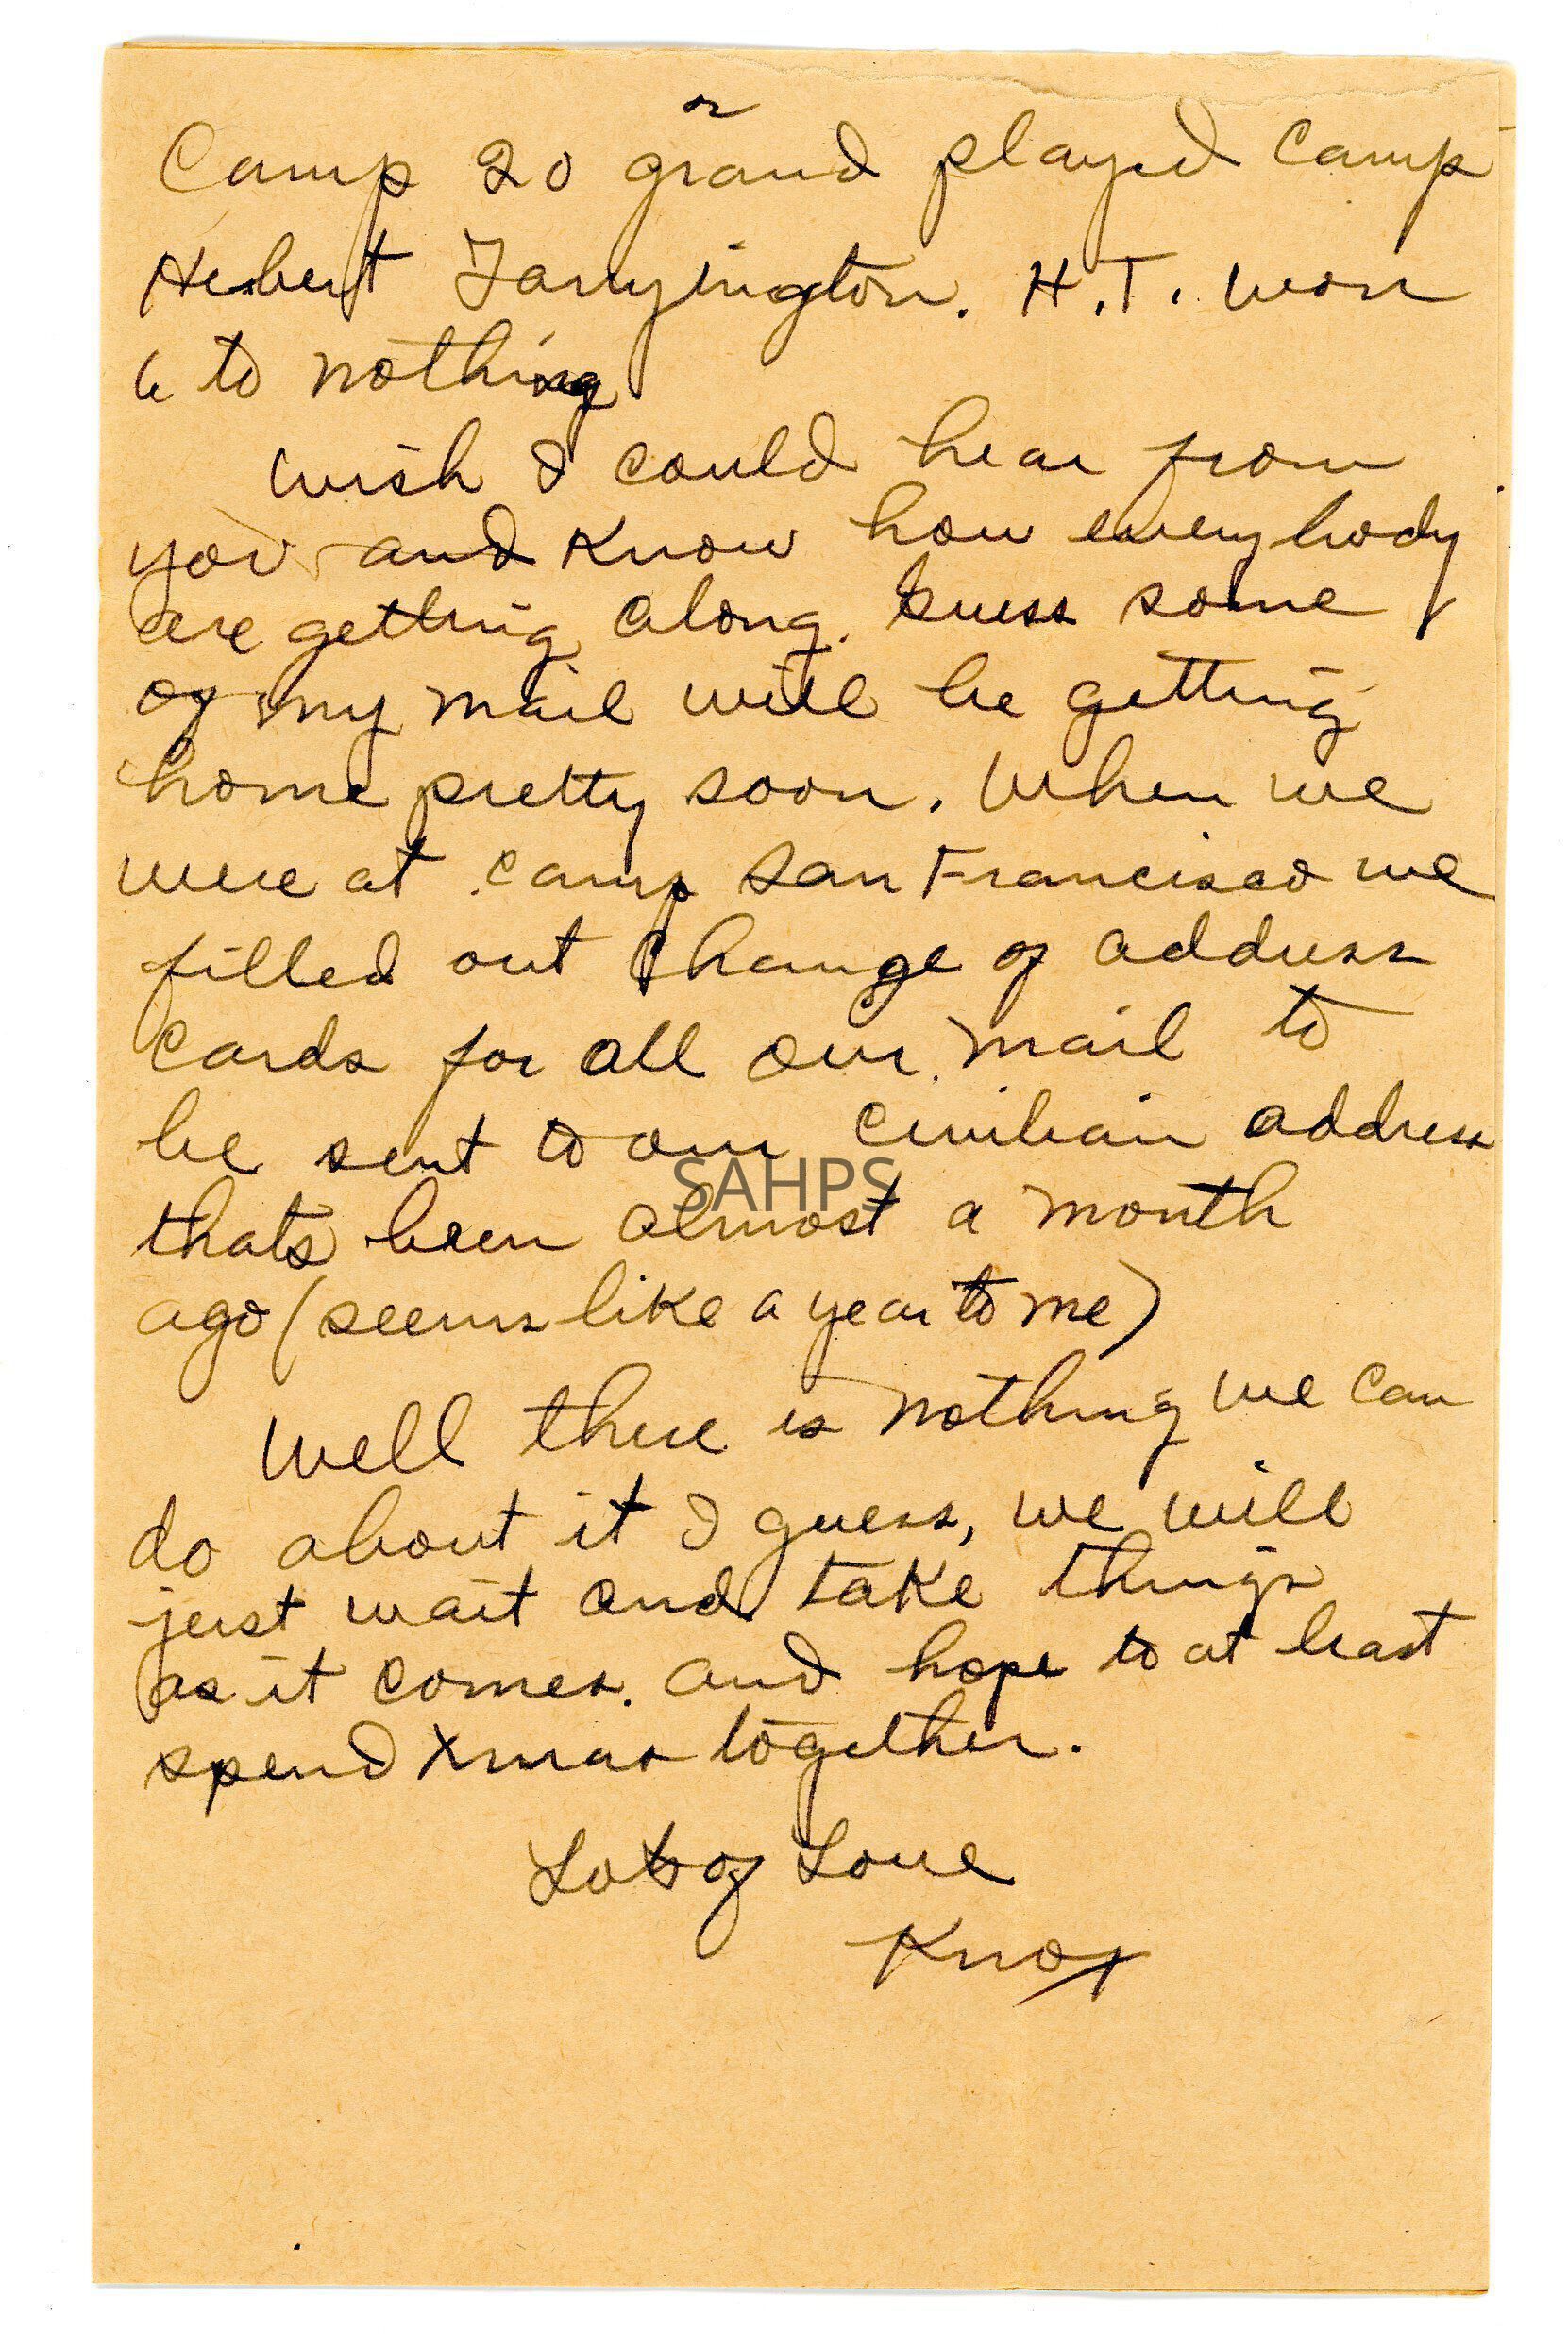 2
Camp 20 grand played Camp
Herbert Tarryington. H.T. won
6 to nothing
wish I could hear from
you and know how everybody
are getting along. Guess some
of my mail will be getting
home pretty soon. When we
were at camp San Francisco we
filled out change of address
cards for all our mail to
be sent to our civilian address
thats been almost a month
ago (seems like a year to me)
Well there is nothing we can
do about it I guess, we will
just wait and take things
as it comes. and hope to at least
spend Xmas together.
Lots of Love
Knox
SAHPS